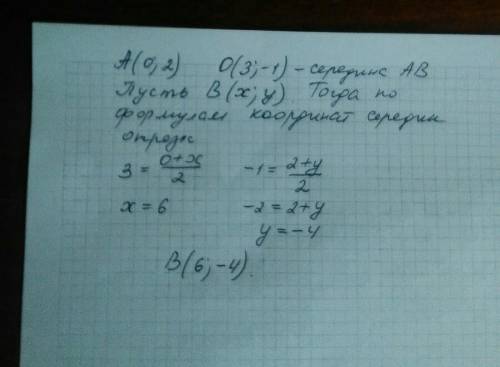 A(0,2) O(3;-1) - середина AB
Пусть B(x;y) Тогда по
формулам координат середин
отрезк
3 = \frac{0+x}{2} -1 = \frac{2+y}{2}
x = 6 -2 = 2+y
y = -4
B(6;-4).